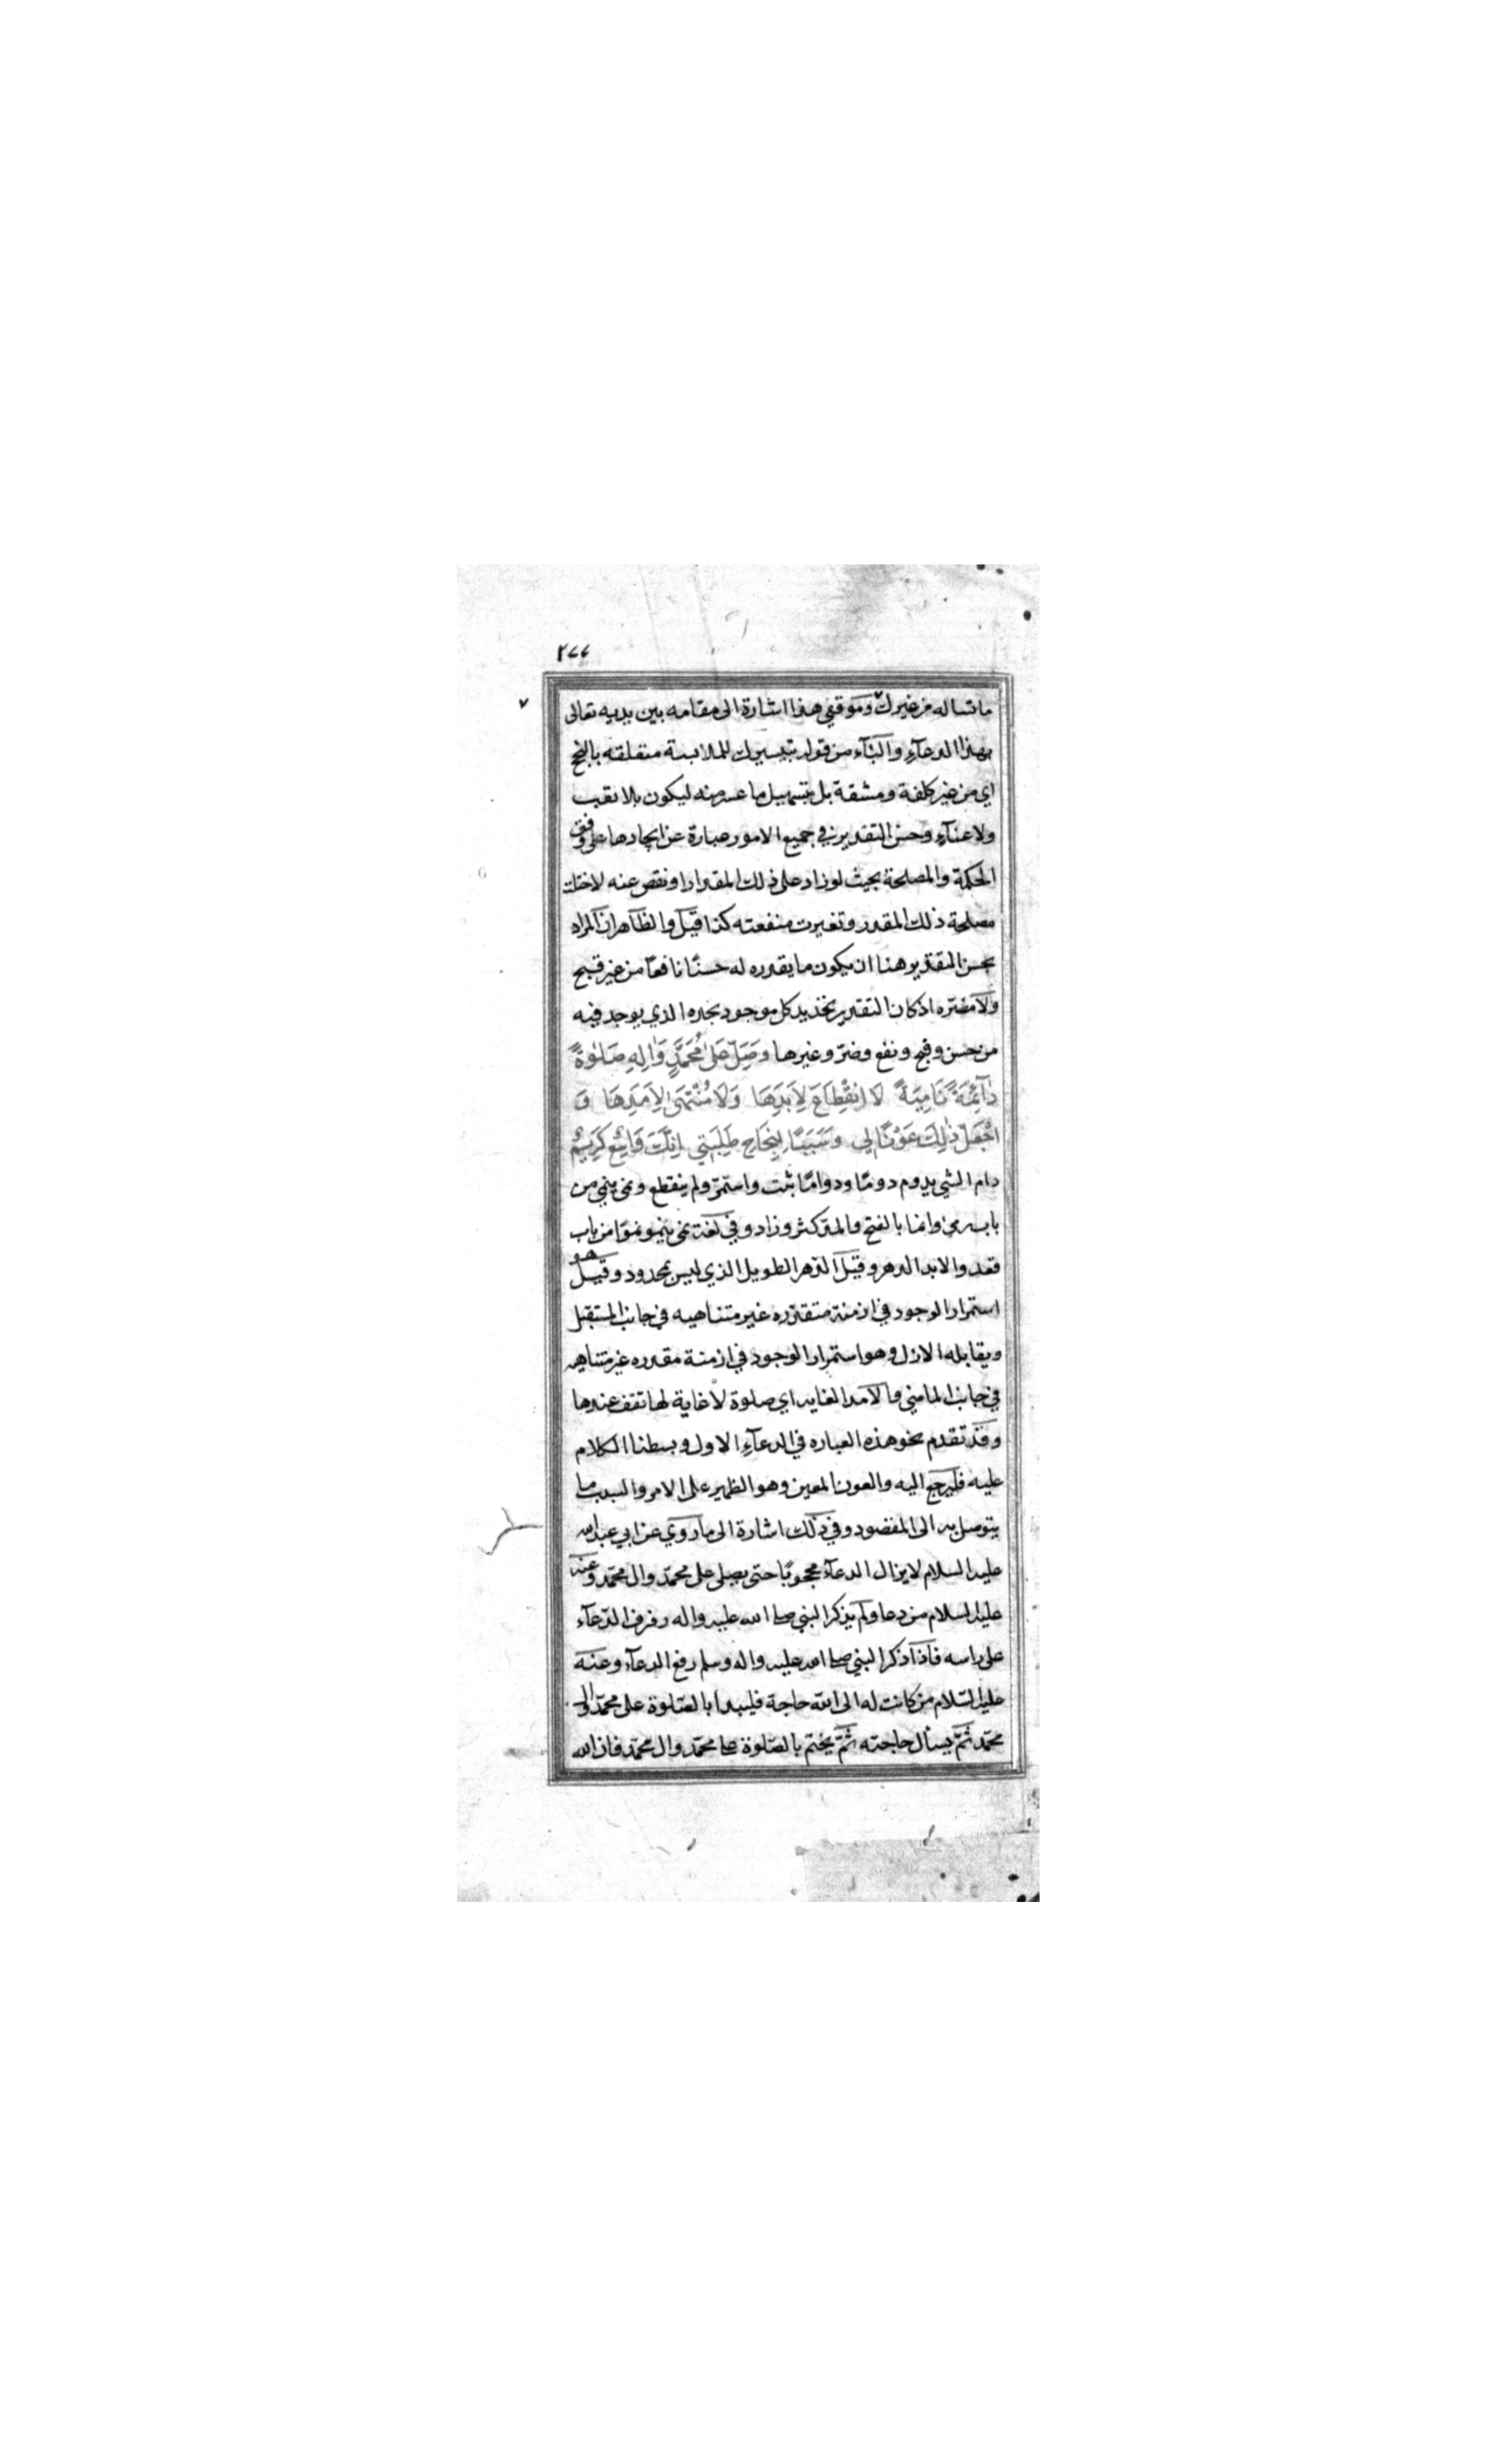 ٢٧٧
ما تساله من غيرك وموقفي هذا اشارة الى مقامه بين يديه تعالى
بهذا الدعآء والبآء من قوله بتيسيرك للملابسة متعلقه بالنجح
اي من غير كلفة ومشقة بل بتسهيل ما عسر منه ليكون بلا تعب
ولا عنآء وحسن التقدير في جميع الامور عبارة عن ايجادها على وفق
الحكمة والمصلحة بحيث لو زاد على ذلك المقدار او نقص عنه لاختلت
مصلحة ذلك المقدر وتغيرت منفعته كذا قيل والظاهر ان المراد
بحسن التقدير هنا ان يكون ما يقدره له حسنًا نافعًا من غير قبح
ولا مضره اذ كان التقدير تحديد كل موجود بحده الذي يوجد فيه
من حسن وقبح ونفع وضرّ وغيرها وَصَلِّ عَلىٰ مُحَمَّدٍ وَاٰلِهِ صَلٰوةً
دٰآئِمَةً نَامِيَةً لَا انْقِطَاعَ لِاَبَدِهَا وَلَا مُنْتَهىٰ لِاَمَدِهَا وَ
اجْعَلْ ذٰلِكَ عَوْنًا لِي وَسَبَبًا لِنَجَاحِ طَلِبَتِي اِنَّكَ وَاسِعٌ كَرِيمٌ
دام الشي يدوم دومًا ودوامًا ثبت واستمرّ ولم ينقطع ونمى ينمي من
باب رمى وانما بالفتح والمد كثر وزاد وفي لغة نمى ينمو نموًا من باب
قعد والابد الدهر وقيل الدّهر الطويل الذي ليس بمحدود وقيل هو
استمرار الوجود في ازمنة متقدّره غير متناهيه في جانب المستقبل
ويقابله الازل وهو استمرار الوجود في ازمنة مقدره غير متناهيه
في جانب الماضي والامد الغايه اي صلوة لا غاية لها تقف عندها
وقد تقدم نحو هذه العباره في الدعآء الاول وبسطنا الكلام
عليه فليرجع اليه والعون المعين وهو الظهير على الامر والسبب ما
يتوصل به الى المقصود وفي ذلك اشارة الى ما روي عن ابي عبد الله
عليه السلام لا يزال الدعآء محجوبًا حتى يصلى على محمّد وال محمّد وعنه
عليه السلام من دعا ولم يذكر النبي صلى الله عليه واله رفرف الدّعآء
على راسه فاذا ذكر النبي صلى الله عليه واله وسلم رفع الدعآء وعنه
عليه السّلام من كانت له الى الله حاجة فليبدا بالصّلوة على محمّد وال
محمّد ثمّ يسأل حاجته ثمّ يختم بالصّلوة على محمّد وال محمّد فان الله